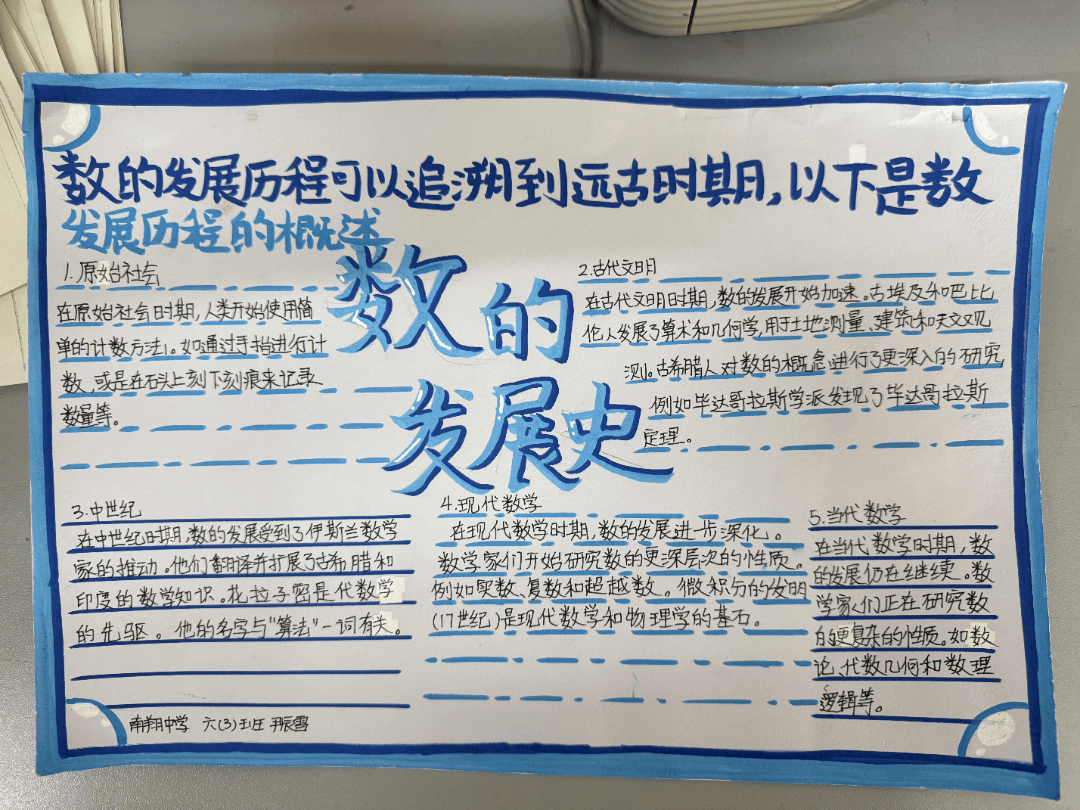 数的发展历程可以追溯到远古时期,以下是数
发展历程的概述
数的
发展史
1.原始社会
在原始社会时期,人类开始使用简
单的计数方法。如通过手指进行计
数,或是在石头上刻下刻痕来记录
数量等。
2.古代文明
在古代文明时期,数的发展开始加速。古埃及和巴比
伦人发展了算术和几何学,用于土地测量、建筑和天文观
测。古希腊人对数的概念进行了更深入的研究
例如毕达哥拉斯学派发现了毕达哥拉斯
定理。
3.中世纪
在中世纪时期,数的发展受到了伊斯兰数学
家的推动。他们翻译并扩展了古希腊和
印度的数学知识。花拉子密是代数学
的先驱。他的名字与“算法”一词有关。
4.现代数学
在现代数学时期,数的发展进一步深化。
数学家们开始研究数的更深层次的性质。
例如实数、复数和超越数。微积分的发明
(17世纪)是现代数学和物理学的基石。
5.当代数学
在当代数学时期,数
的发展仍在继续。数
学家们正在研究数
的更复杂的性质。如数
论、代数几何和数理
逻辑等。
南翔中学 六(3)班